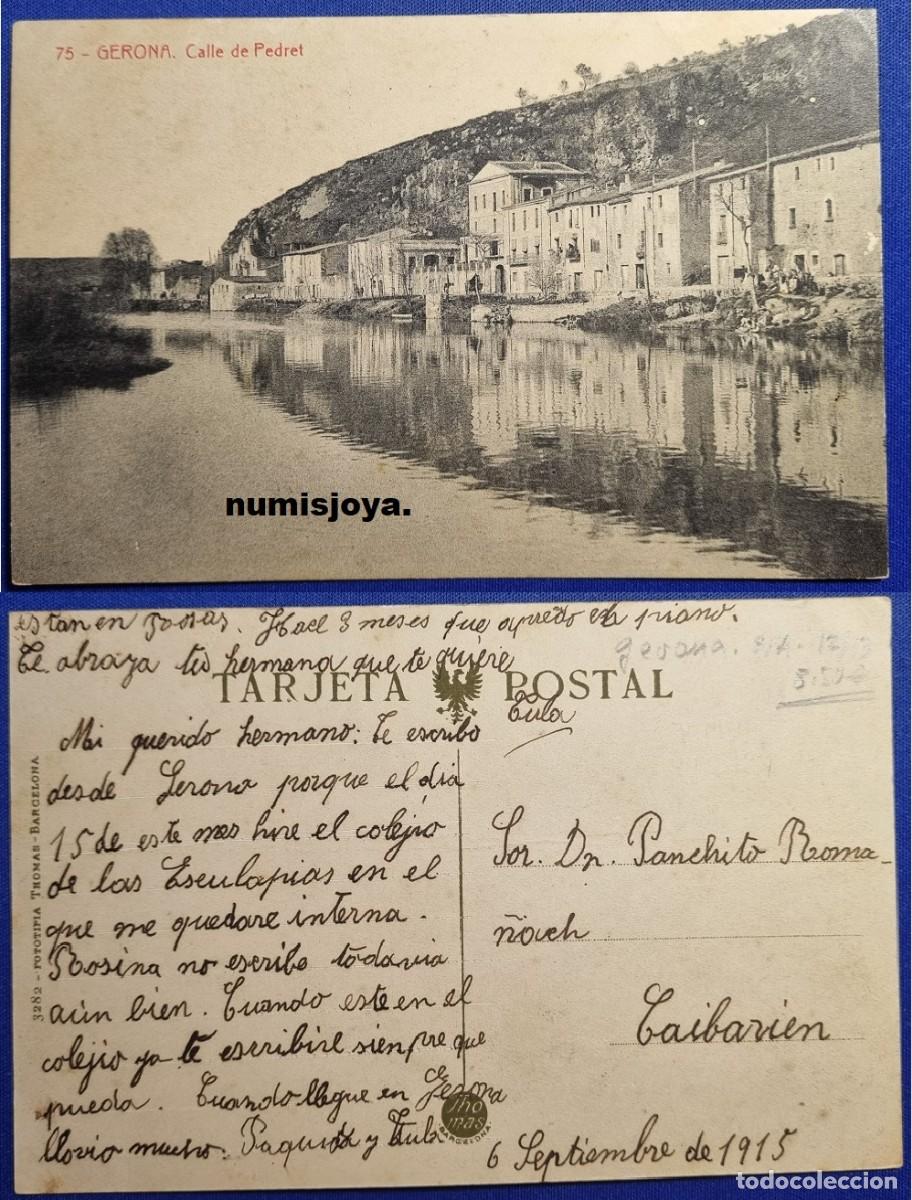 75 - GERONA. Calle de Pedret
numisjoya.
estan en Rosas. Hace 3 meses que apredo el piano.
Te abraza tu hermana que te quiere
Tula
gerona.
TARJETA POSTAL
Mi querido hermano: Te escribo
desde Gerona porque el dia
15 de este mes hire el colejio
de las Esculapias en el
que me quedare interna.
Rosina no escribe todavia
aún bien. Cuando este en el
colejio ya te escribire sienpre que
pueda. Cuando llegue en Gerona
llovio mucho. Paquita y Tula
Sor. Dn. Panchito Roma-
ñach
Caibarien
6 Septiembre de 1915
3282 - FOTOTIPIA THOMAS - BARCELONA
Thomas
BARCELONA
todocoleccion